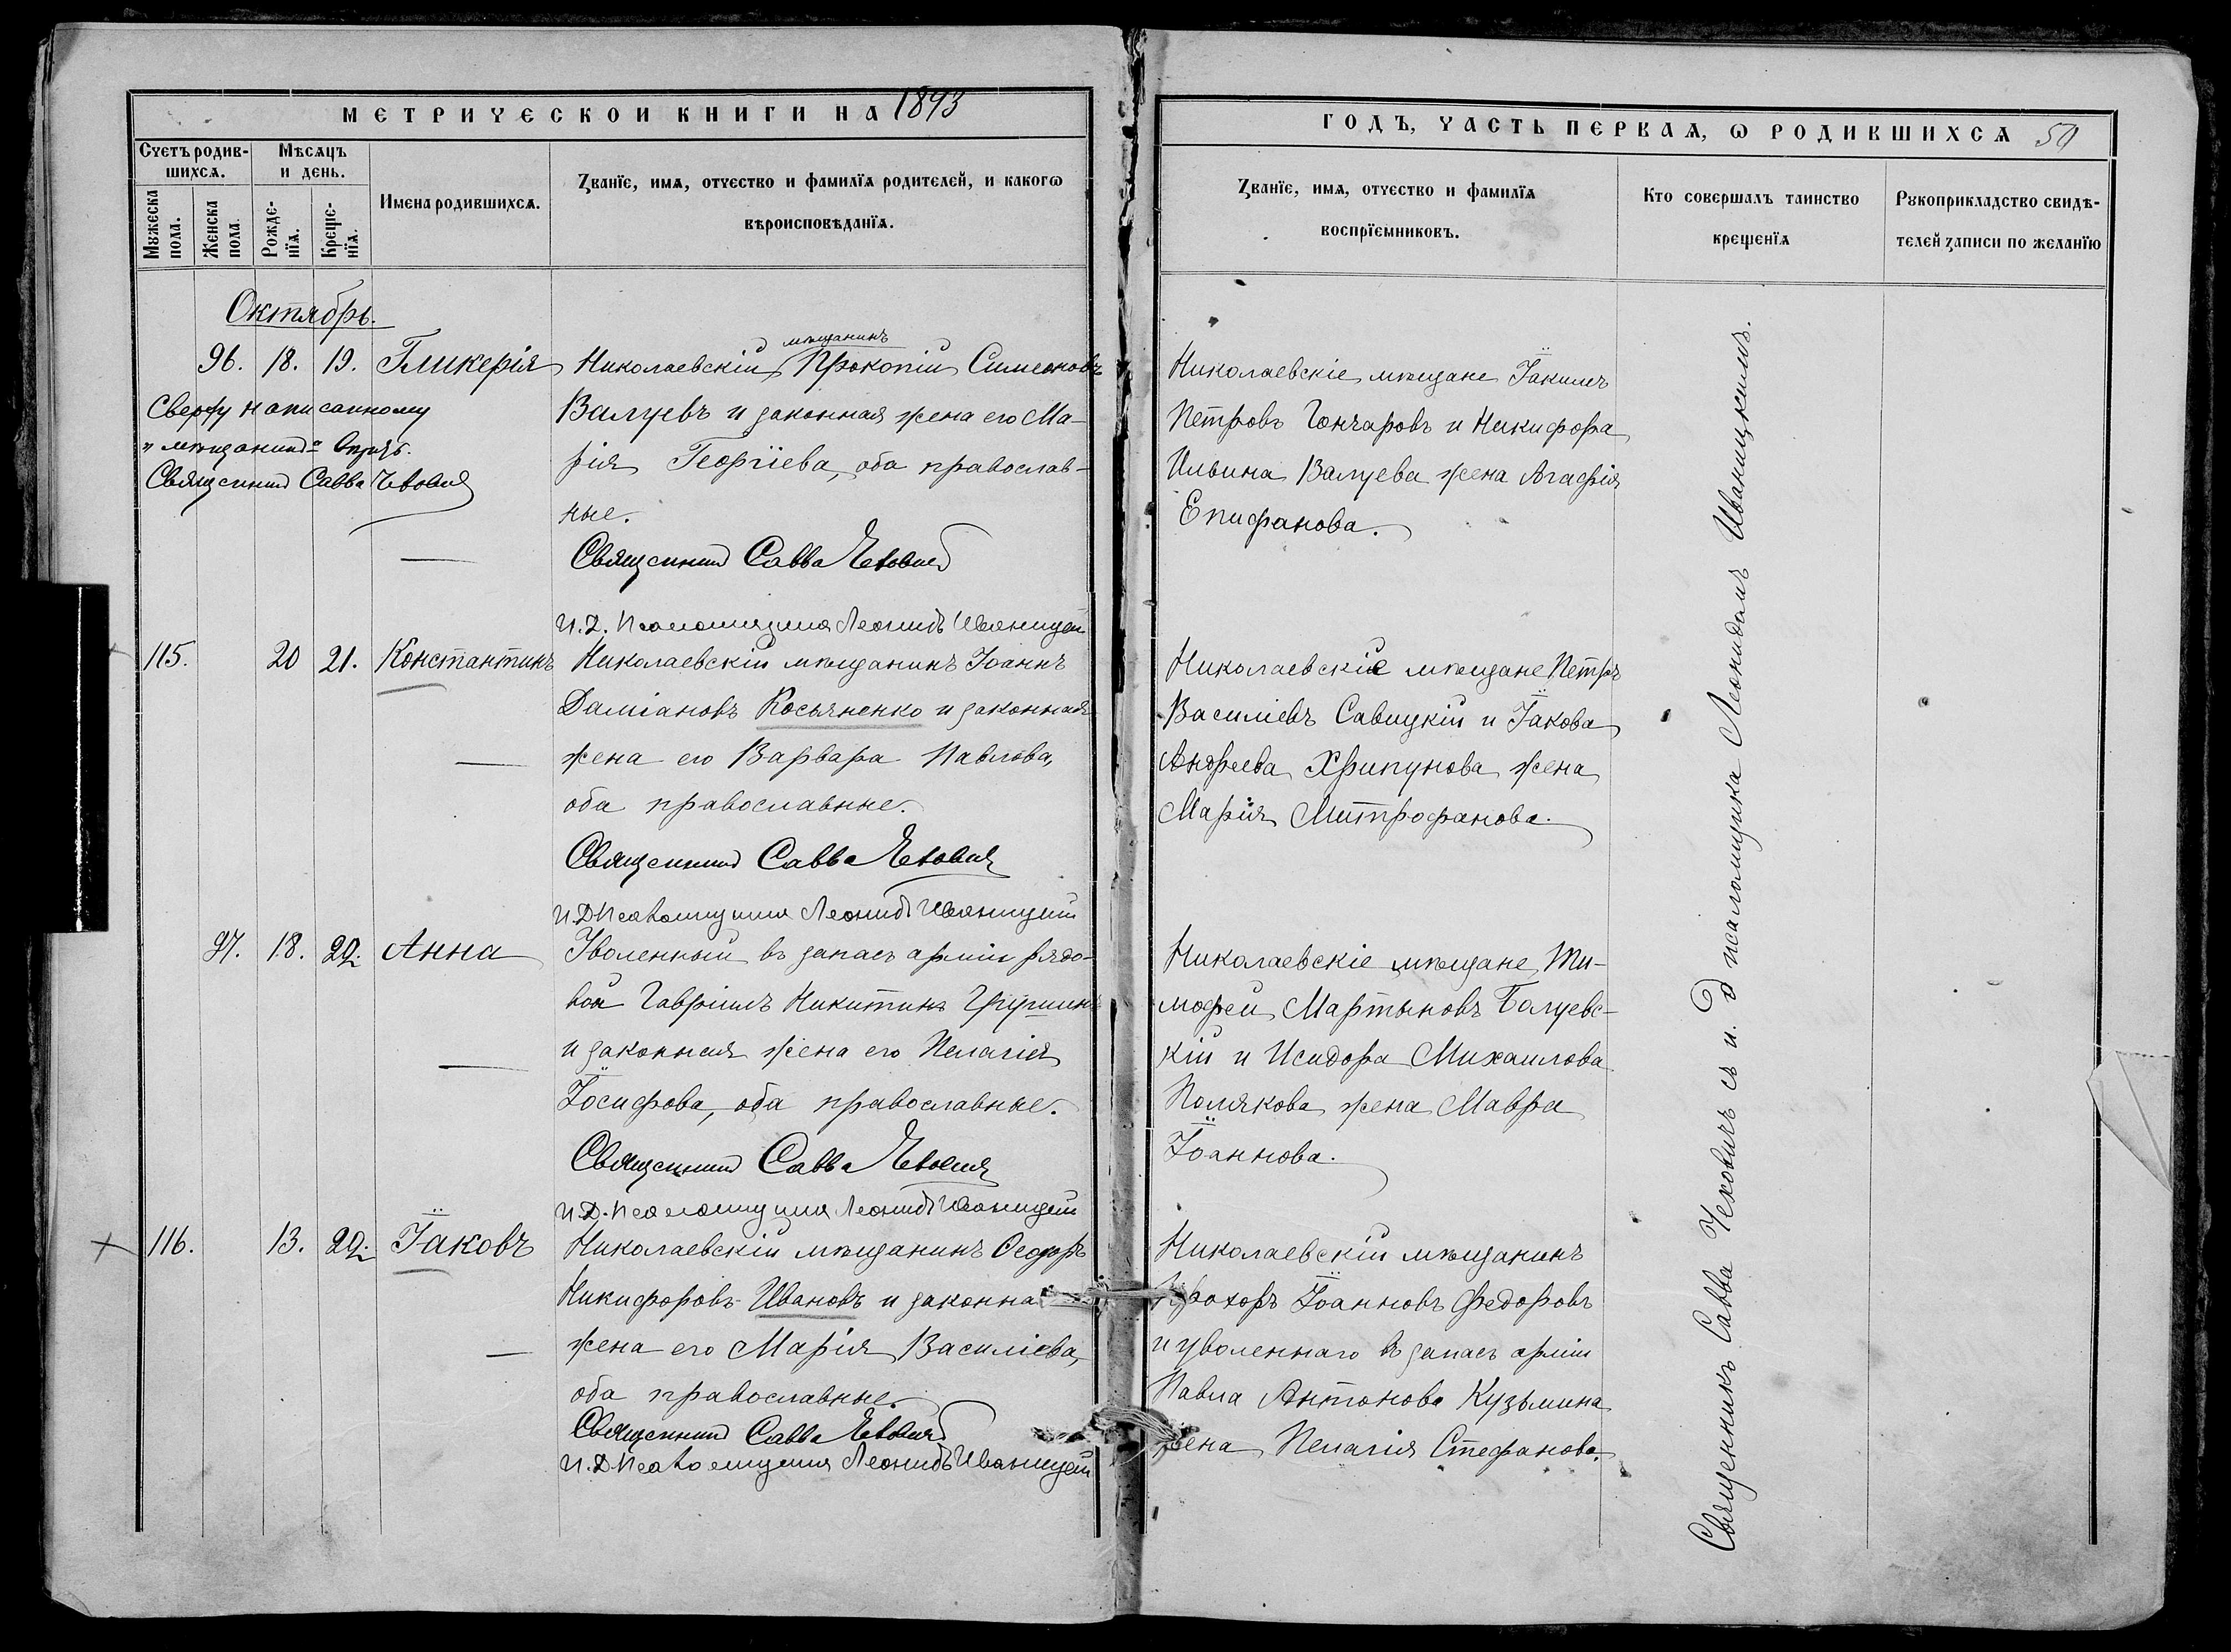 МЕТРИЧЕСКОЙ КНИГИ НА 1893
Счетъ родив-
шихся.
Мѣсяцъ
и день.
Мужеска
пола.
Женска
пола.
Рожде-
нія.
Креще-
нія.
Имена родившихся.
Званїе, имя, отчество и фамилїя родителей, и какогѡ
вѣроисповѣданїя.
Октябрь.
96. 18. 19. Гликерія
Сверху написанному
„мѣщанинъ“ вѣрить.
Священникъ Савва Чеховичъ
мѣщанинъ
Николаевскій Прокопій Симеоновъ
Валуевъ и законная жена его Ма-
рія Георгіева, оба православ-
ные.
Священникъ Савва Чеховичъ
И. Д. Псаломщика Леонидъ Иваницкій
115. 20 21. Константинъ
Николаевскій мѣщанинъ Іоаннъ
Даміановъ Косьяненко и законная
жена его Варвара Павлова,
оба православные.
Священникъ Савва Чеховичъ
И. Д. Псаломщика Леонидъ Иваницкій
97. 18. 22. Анна
Уволенный въ запасъ арміи рядо-
вой Гавріилъ Никитинъ Грушинъ
и законная жена его Пелагія
Іосифова, оба православные.
Священникъ Савва Чеховичъ
И. Д. Псаломщика Леонидъ Иваницкій
116. 13. 22. Іаковъ
Николаевскій мѣщанинъ Ѳеодоръ
Никифоровъ Ивановъ и законная
жена его Марія Василіева,
оба православные.
Священникъ Савва Чеховичъ
И. Д. Псаломщика Леонидъ Иваницкій
ГОДЪ, ЧАСТЬ ПЕРВАЯ, Ѡ РОДИВШИХСЯ
Званїе, имя, отчество и фамилїя
воспрїемниковъ.
Кто совершалъ таинство
крещенїя
Рукоприкладство свидѣ-
телей записи по желанїю
Николаевскіе мѣщане Іакимъ
Петровъ Гончаровъ и Никифора
Ильина Валуева жена Агафія
Епифанова.
Николаевскіе мѣщане Петръ
Василіевъ Савицкій и Іакова
Андреева Хрипунова жена
Марія Митрофанова.
Николаевскіе мѣщане Ти-
мофей Мартыновъ Балуевс-
кій и Исидора Михаилова
Полякова жена Мавра
Іоаннова.
Николаевскій мѣщанинъ
Прохоръ Іоанновъ Федоровъ
и уволеннаго въ запасъ арміи
Павла Антонова Кузьмина
жена Пелагія Стефанова.
Священникъ Савва Чеховичъ съ и. д псаломщика Леонидомъ Иваницкимъ.